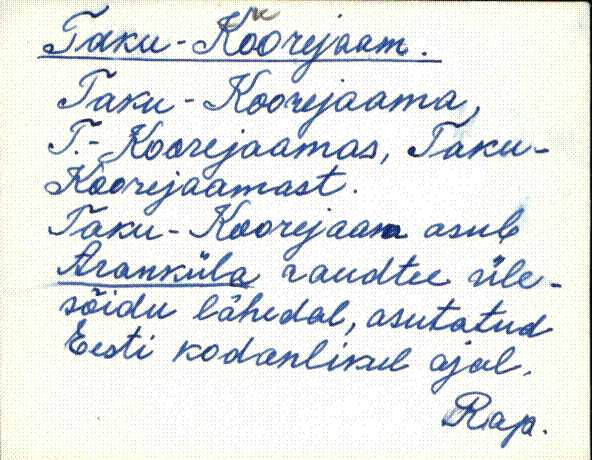 Taku-Koorejaam.
Taku-Koorejaama,
T.-Koorejaamas, Taku-
Koorejaamast.
Taku-Koorejaam asub
Aranküla raudtee üle-
sõidu lähedal, asutatud
Eesti kodanlikul ajal.
Rap.